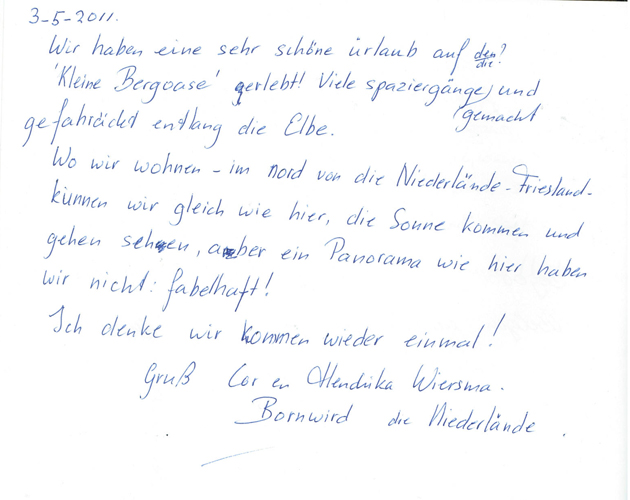 3-5-2011.
Wir haben eine sehr schöne ürlaub auf den/die?
'Kleine Bergoase' gerlebt! Viele spaziergänge, und
gemacht
gefahräckt entlang die Elbe.
Wo wir wohnen - im nord von die Niederlände - Friesland -
künnen wir gleich wie hier, die Sonne kommen und
gehen sehen, aber ein Panorama wie hier haben
wir nicht: fabelhaft!
Ich denke wir kommen wieder einmal!
Gruß Cor en Hendrika Wiersma.
Bornwird die Niederlände.